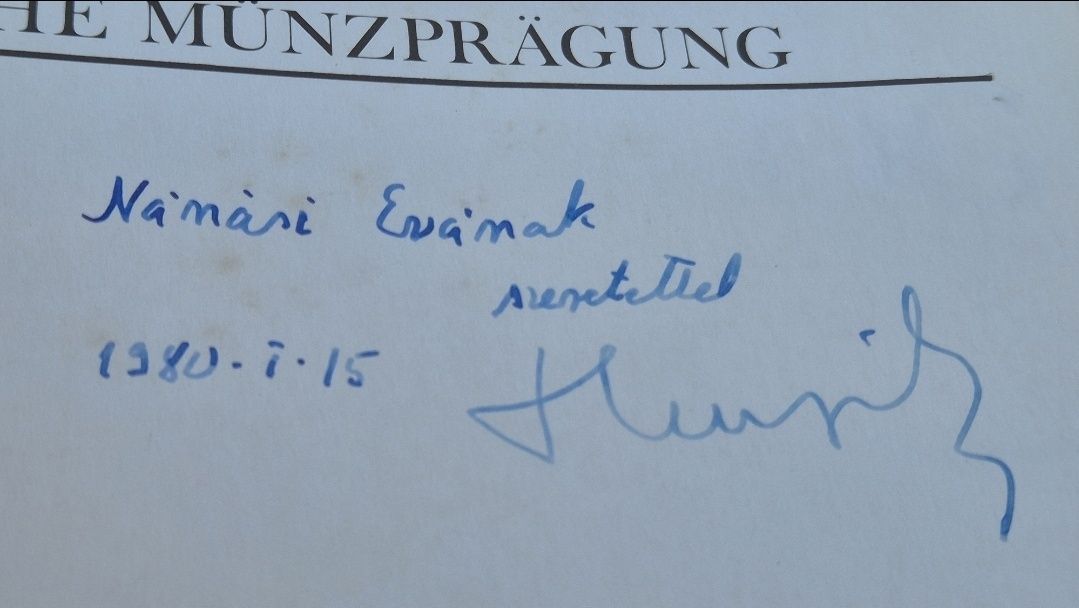 HE MÜNZPRÄGUNG
Nánási Évának
szeretettel
1980. I. 15